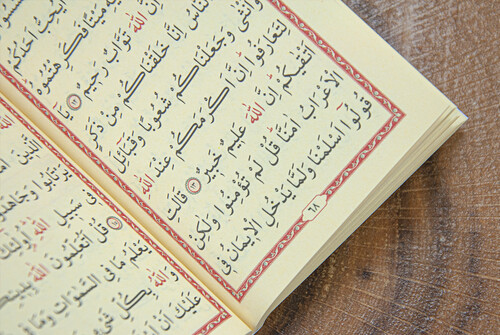 أَيُحِبُّ أَحَدُكُمْ
مَيْتًا فَكَرِهْتُمُوهُ
إِنَّ اللّٰهَ تَوَّابٌ رَحِيمٌ ﴿١٢﴾ يَا
النَّاسُ إِنَّا خَلَقْنَاكُمْ مِنْ ذَكَرٍ
وَأُنْثٰى وَجَعَلْنَاكُمْ شُعُوبًا وَقَبَائِلَ
لِتَعَارَفُوا إِنَّ أَكْرَمَكُمْ عِنْدَ اللّٰهِ
أَتْقٰيكُمْ إِنَّ اللّٰهَ عَلِيمٌ خَبِيرٌ ﴿١٣﴾ قَالَتِ
الْأَعْرَابُ اٰمَنَّا قُلْ لَمْ تُؤْمِنُوا وَلٰكِنْ
قُولُوا أَسْلَمْنَا وَلَمَّا يَدْخُلِ الْإِيمَانُ فِي
٦٨
الَّذِينَ
يَرْتَابُوا وَجَاهَدُوا
فِي سَبِيلِ اللّٰهِ أُولٰئِكَ
قُلْ أَتُعَلِّمُونَ اللّٰهَ
يَعْلَمُ مَا فِي السَّمٰوَاتِ وَمَا
وَاللّٰهُ بِكُلِّ شَيْءٍ
عَلَيْكَ أَنْ